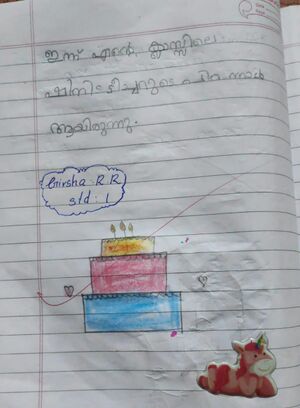 ഇന്ന് എന്റെ ക്ലാസ്സിലെ
ഷിനി ടീച്ചറുടെ പിറന്നാൾ
ആയിരുന്നു.
Girisha R R
std : 1